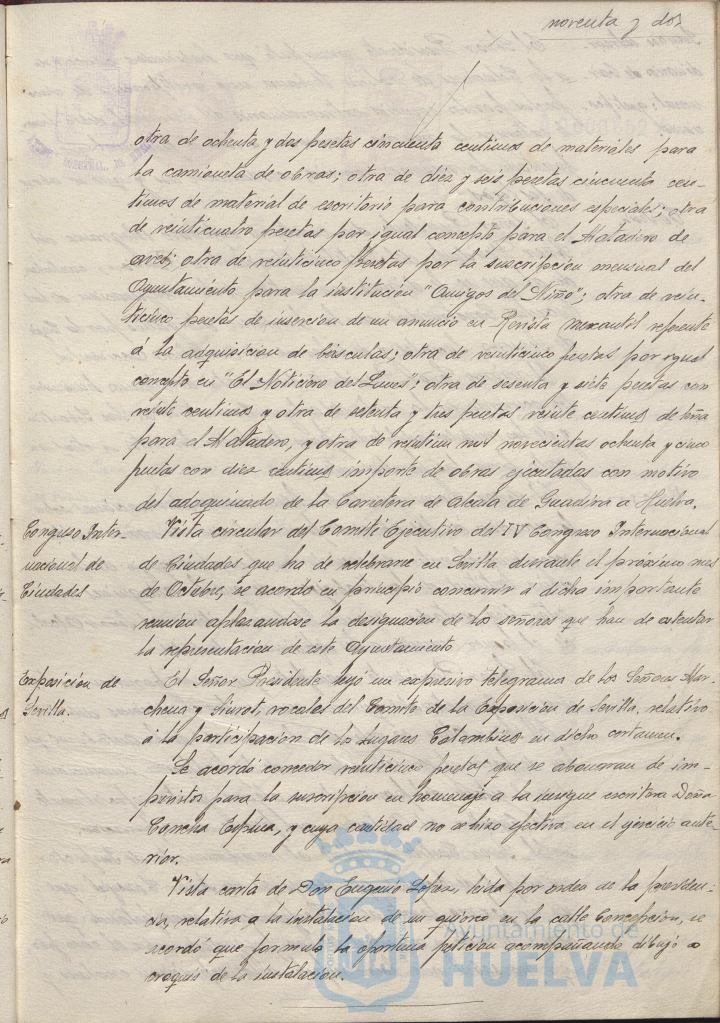 noventa y dos
otra de ochenta y dos pesetas cincuenta centimos de materiales para
la camioneta de obras; otra de diez y seis pesetas cincuenta cen-
timos de material de escritorio para contribuciones especiales; otra
de veinticuatro pesetas por igual concepto para el Matadero de
aves; otra de veinticinco pesetas por la suscripcion mensual del
Ayuntamiento para la institución "Amigos del Niño"; otra de vein-
ticinco pesetas de insercion de un anuncio en Revista mercantil referente
á la adquisicion de básculas; otra de veinticinco pesetas por igual
concepto en "El Noticiero del Lunes"; otra de sesenta y siete pesetas con
veinte centimos y otra de setenta y tres pesetas veinte centimos de leña
para el Matadero, y otra de veintiun mil novecientas ochenta y cinco
pesetas con diez centimos importe de obras ejecutadas con motivo
del adoquinado de la Carretera de Alcala de Guadaira a Huelva.
Congreso Inter-
nacional de
Ciudades
Vista circular del Comité Ejecutivo del IV Congreso Internacional
de Ciudades, que ha de celebrarse en Sevilla durante el próximo mes
de Octubre, se acordó en principio concurrir á dicha importante
reunion aplazandose la designacion de los señores que han de ostentar
la representación de este Ayuntamiento
Exposición de
Sevilla.
El Señor Presidente leyó un expresivo telegrama de los Señores Mar-
chena y Siurot, vocales del Comité de la Exposición de Sevilla, relativo
á la participacion de los Lugares Colombinos en dicho certamen.
Se acordó conceder veinticinco pesetas que se abonaran de im-
previstos para la suscripcion en homenaje a la insigne escritora Doña
Concha Espina, y cuya cantidad no se hizo efectiva en el ejercicio ante-
rior.
Vista carta de Don Eugenio Lopez, leida por orden de la presiden-
cia, relativa a la instalacion de un quiosco en la calle Concepcion, se
acordó que formule la oportuna peticion acompañando dibujo o
croquis de la instalacion.
Ayuntamiento de
HUELVA